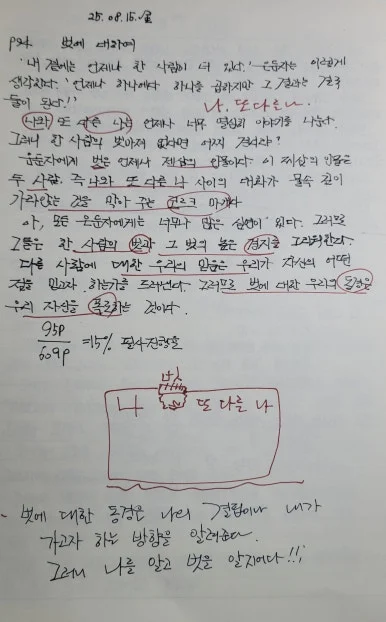 25.08.15.金
P94. 벗에 대하여
'내 곁에는 언제나 한 사람이 더 있다.' -은둔자는 이렇게
생각한다. '언제나 하나에다 하나를 곱하지만 그 결과는 결국
둘이 된다!'
나, 또다른 나.
나와 또 다른 나는 언제나 너무 열심히 이야기를 나눈다.
그러니 한 사람의 벗마저 없다면 어찌 견디랴?
은둔자에게 벗은 언제나 제삼의 인물이다. 이 제삼의 인물은
두 사람, 즉 나와 또 다른 나 사이의 대화가 물속 깊이
가라앉는 것을 막아 주는 코르크 마개다
아, 모든 은둔자에게는 너무나 많은 심연이 있다. 그러므로
그들은 한 사람의 벗과 그 벗의 높은 경지를 그리워한다.
다른 사람에 대한 우리의 믿음은 우리가 자신의 어떤
점을 믿고자 하는가를 드러낸다. 그러므로 벗에 대한 우리의 동경은
우리 자신을 폭로하는 것이다.
95p
609p
=15% 필사진행율
벗
나 또 다른 나
- 벗에 대한 동경은 나의 결핍이나 내가
가고자 하는 방향을 알려준다.
그러니 나를 알고 벗을 알지어다!!